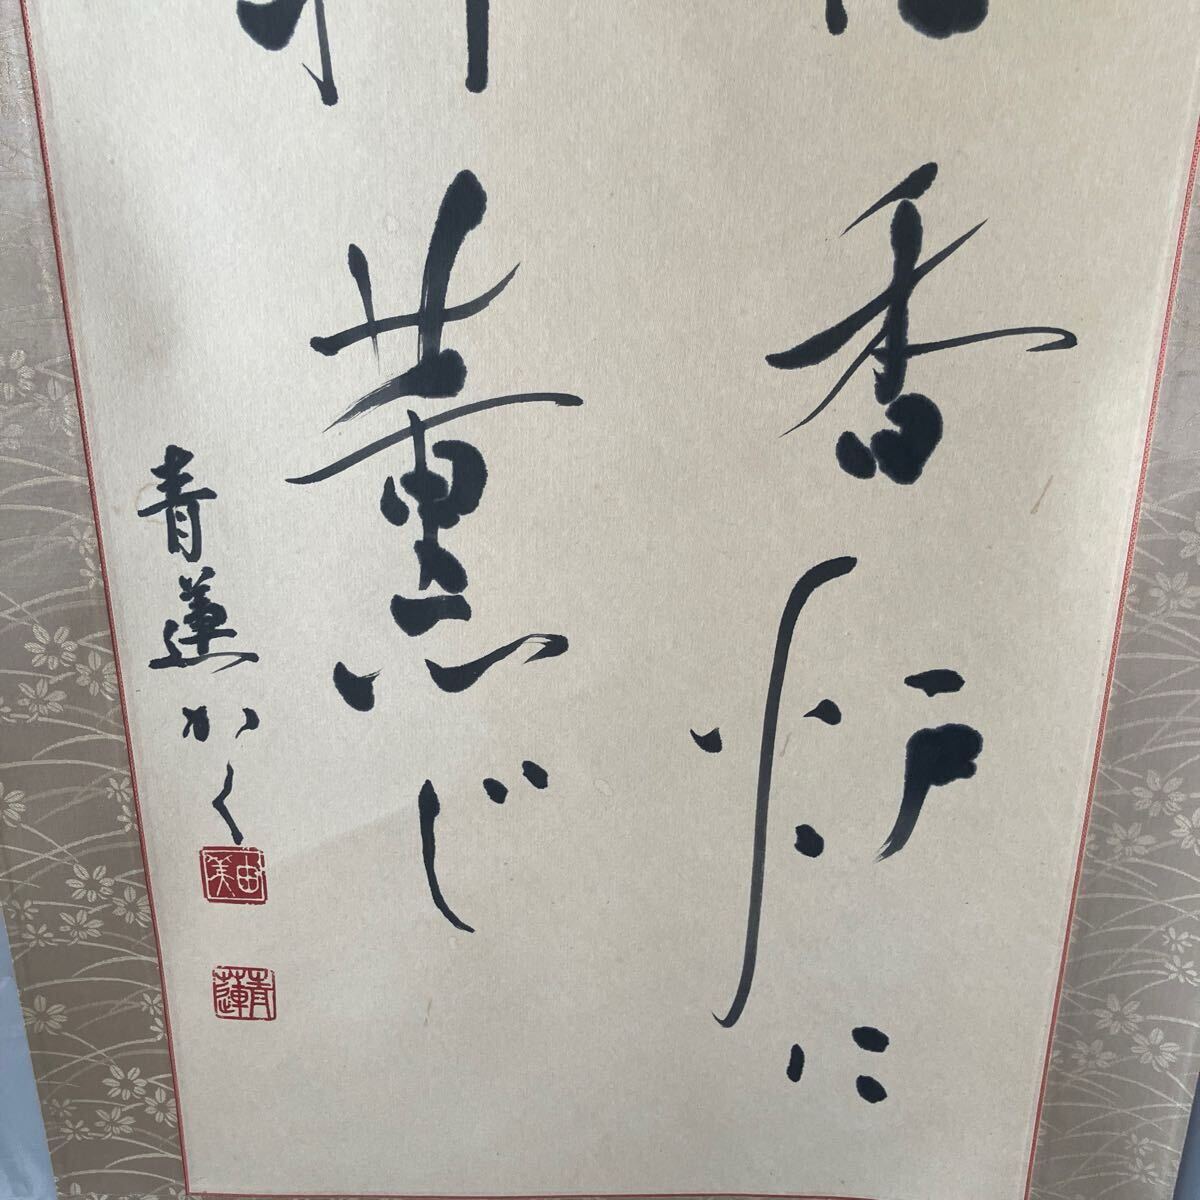 香炉に
薫じ
青蓮かく
由美
青蓮